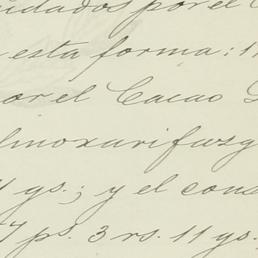 uidados por el C
esta forma: 1
por el Cacao
lmoxarifazg
gs.; y el cond
7 ps. 3 rs. 11 gs.